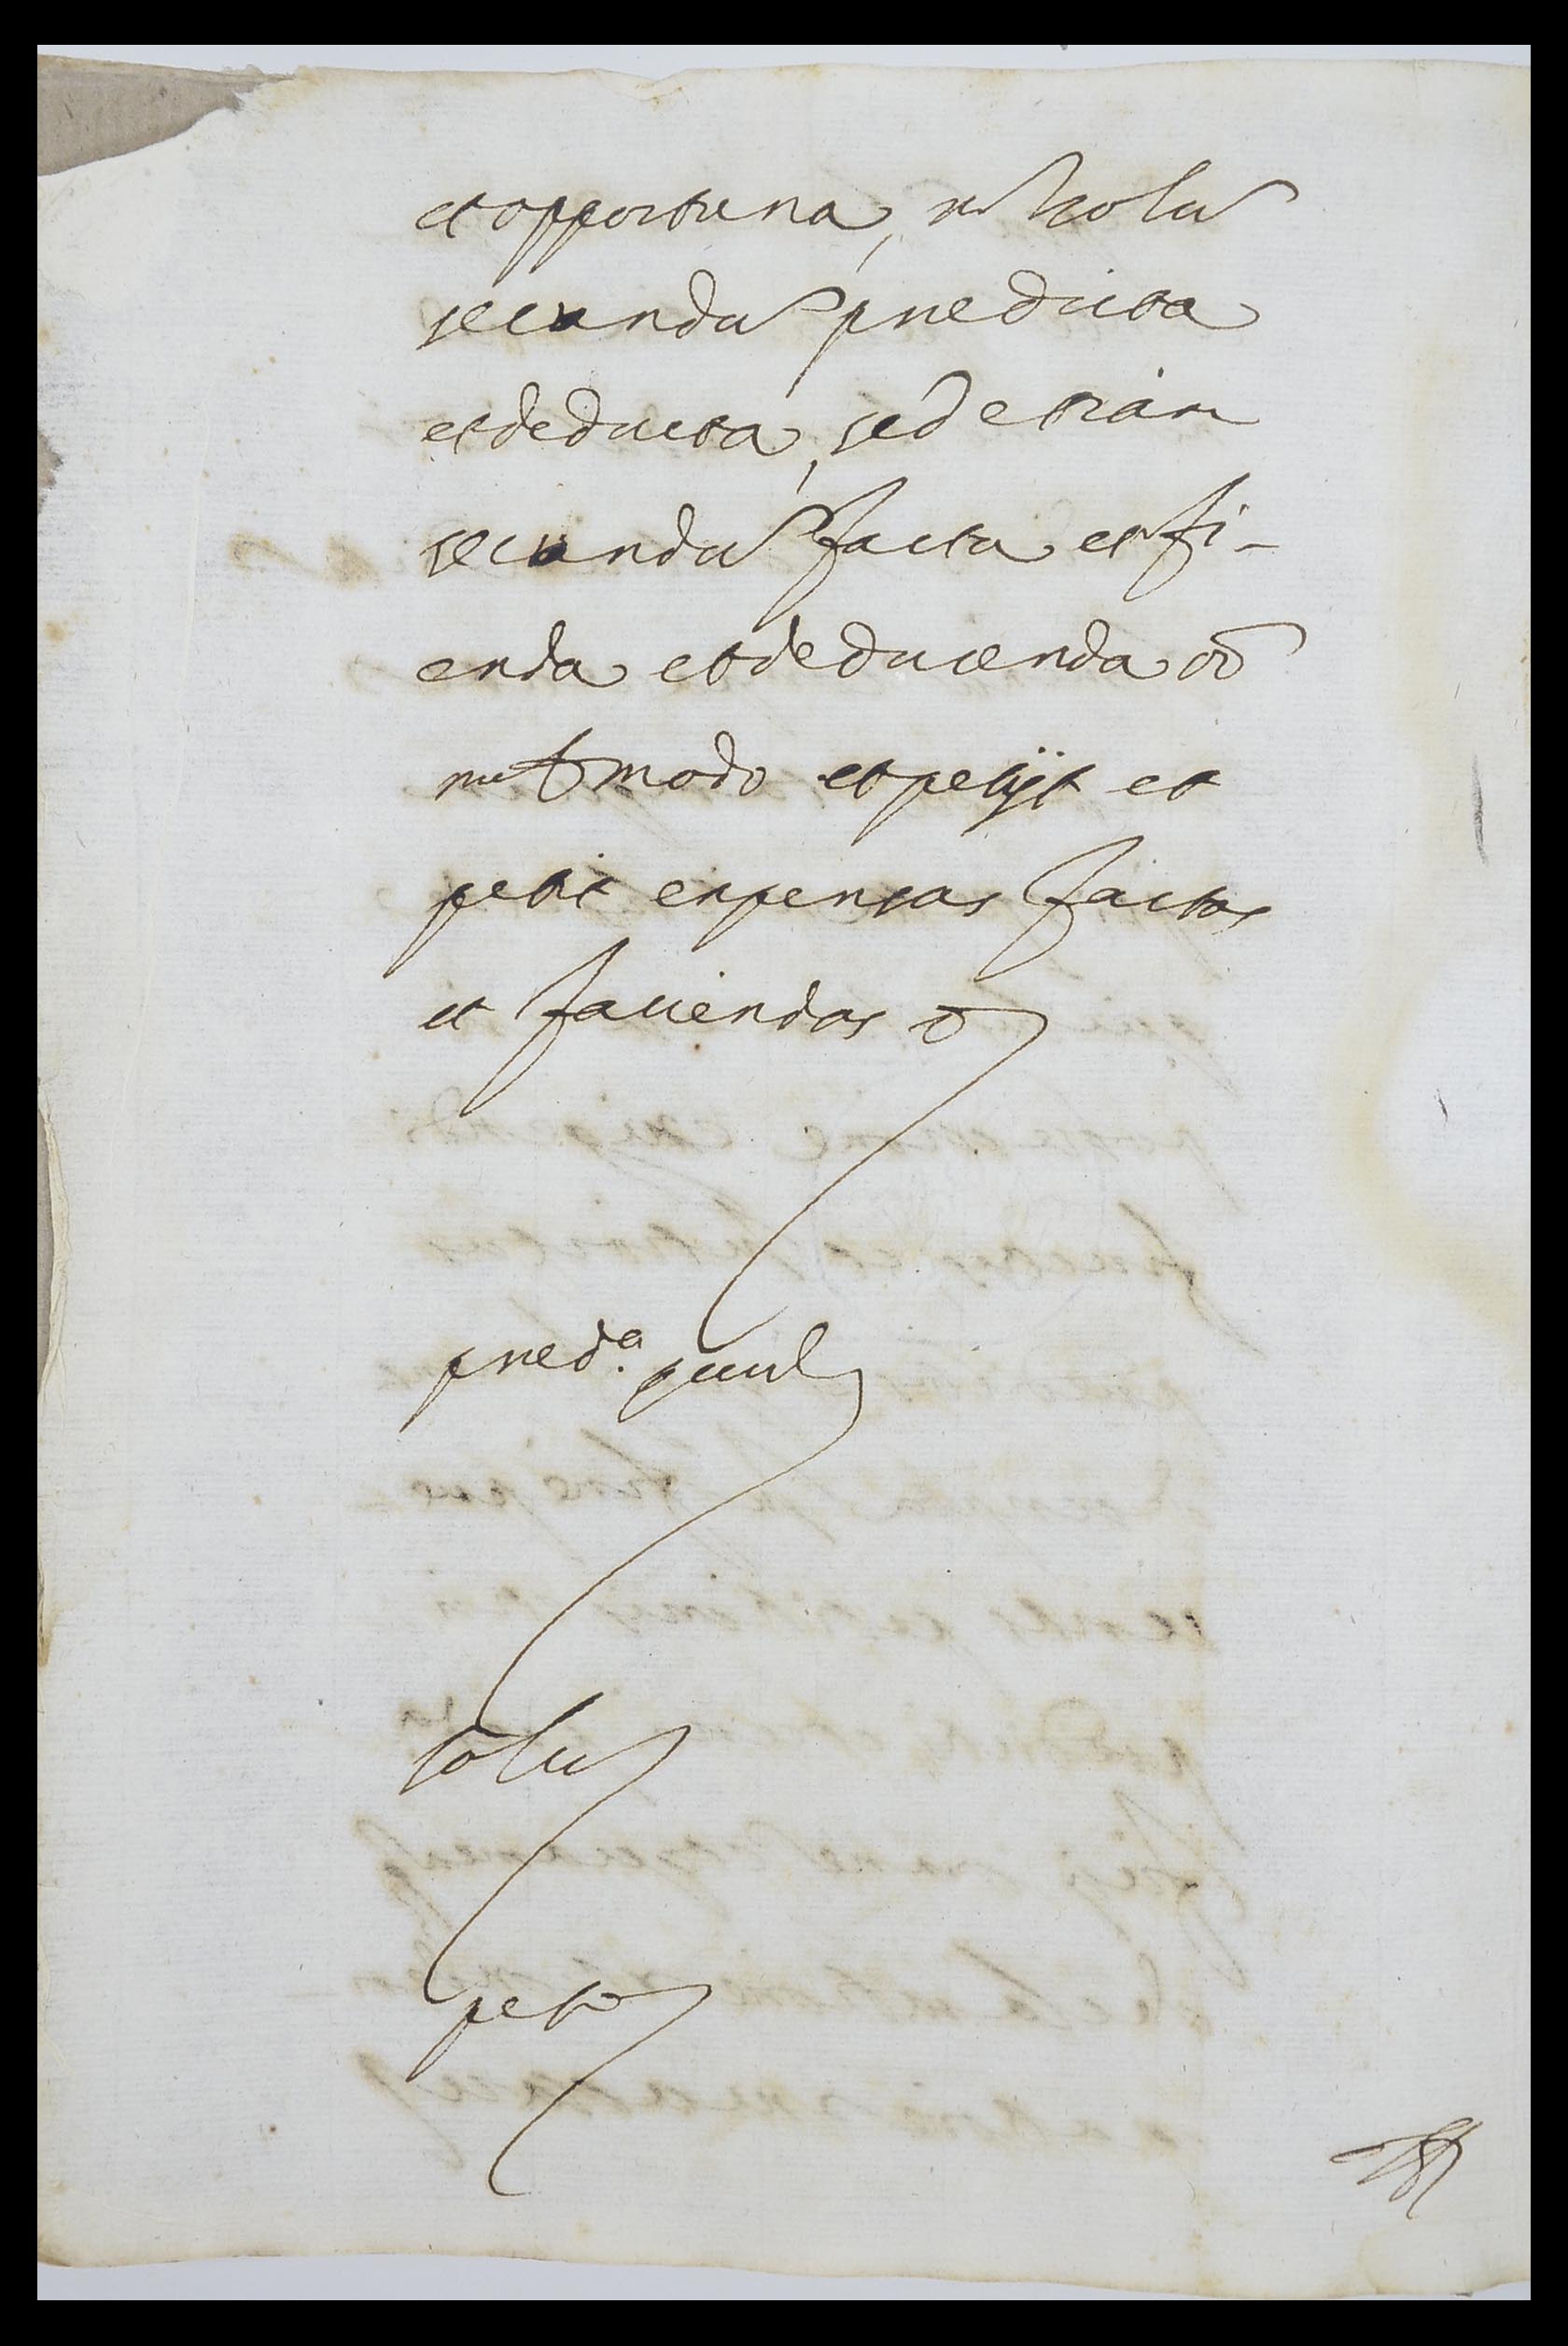 et opportuna, nō solū
secundū predicta
et deducta, sed etiam
secundū facta et fi-
enda et deducenda oī
modo et petijt et
petit expensas factas
et faciendas
pred.ª
solū
peto